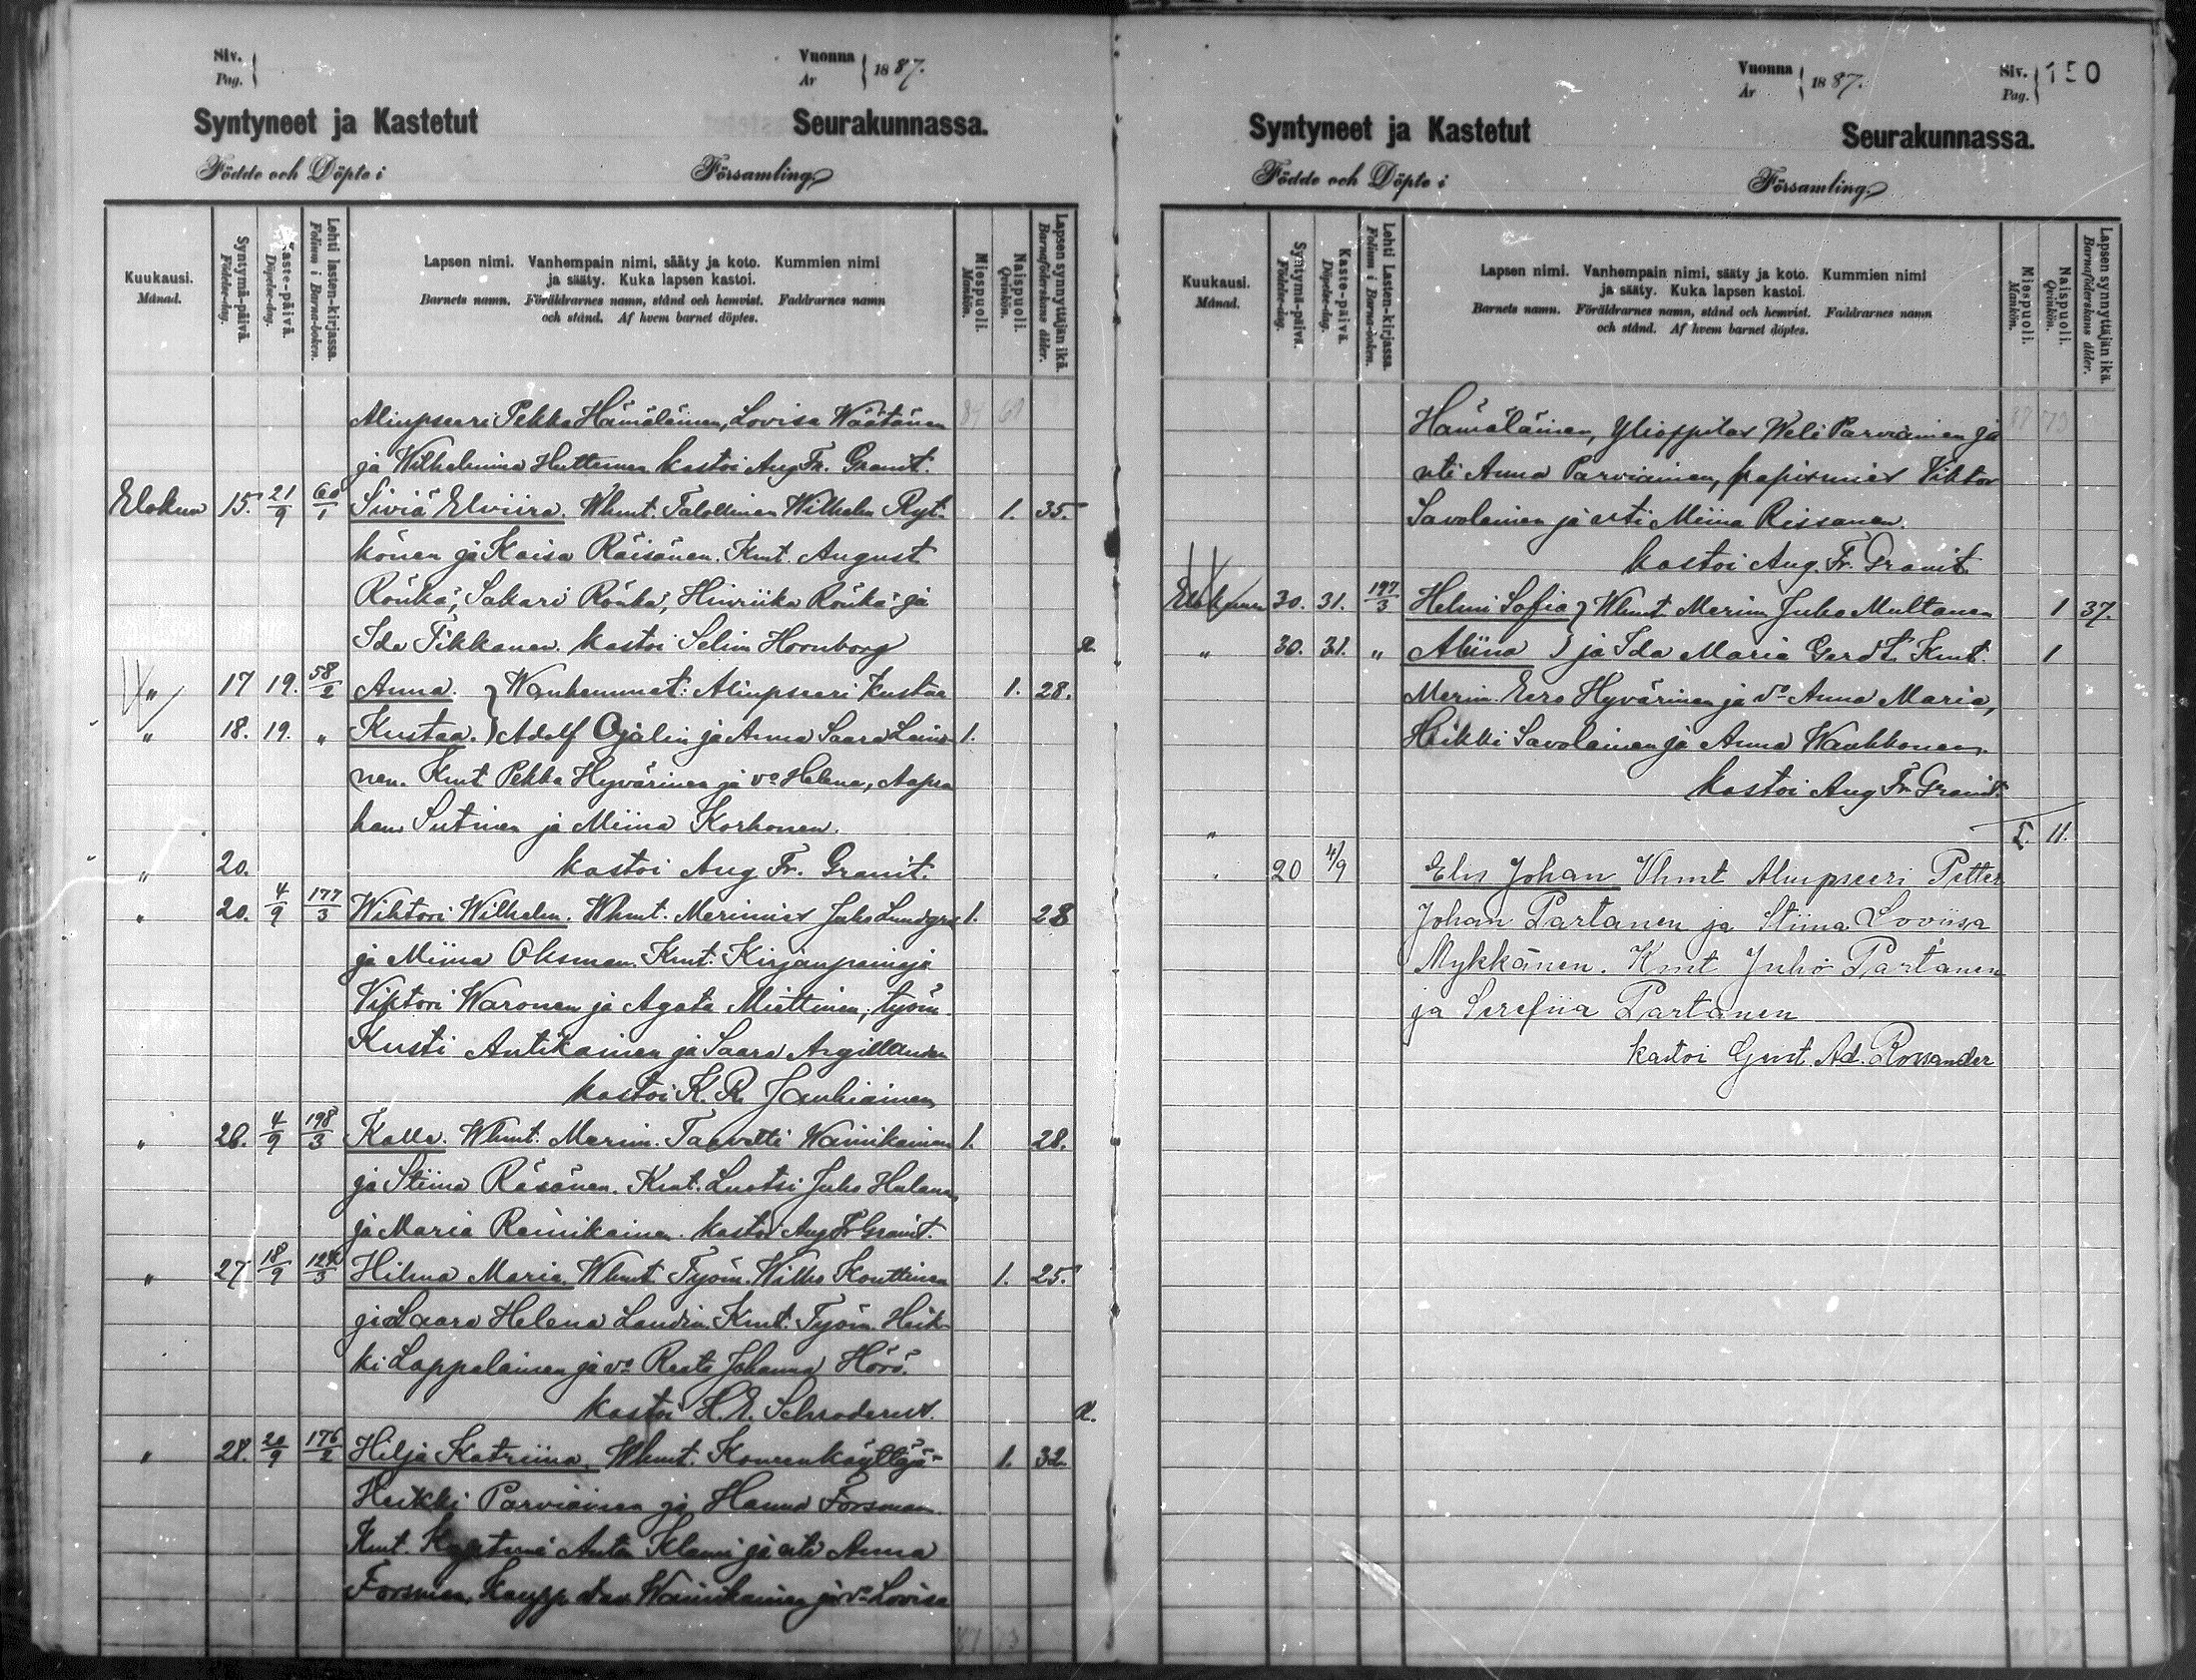 Siv.
Pag.
Vuonna
År
1887.
Syntyneet ja Kastetut Seurakunnassa.
Födde och Döpte i Församling.
Kuukausi.
Månad.
Syntymä-päivä.
Födelse-dag.
Kaste-päivä.
Döpelse-dag.
Lehti lasten-kirjassa.
Folium i Barna-boken.
Lapsen nimi. Vanhempain nimi, sääty ja koto. Kummien nimi
ja sääty. Kuka lapsen kastoi.
Barnets namn. Föräldrarnes namn, stånd och hemvist. Faddrarnes namn
och stånd. Af hvem barnet döptes.
Miespuoli.
Mankön.
Naispuoli.
Qvinkön.
Lapsen synnyttäjän ikä.
Barnaföderskans ålder.
Aliupseeri Pekka Hämäläinen, Lovisa Wäätänen
ja Wilhelmina Huttunen kastoi Aug Fr. Granit.
Elokuu 15. 21/9 60/1 Siviä Elviira. Whmt. Talollinen Wilhelm Ryt- 1. 35.
könen ja Kaisa Räisänen. Kmt. August
Rönkä, Sakari Rönkä, Hinriika Rönkä ja
Ida Tikkanen. kastoi Selim Hornborg
" 17 19. 58/2 Anna. } Wanhemmat: Aliupseeri Kustaa 1. 28.
" 18. 19. " Kustaa. } Adolf Ojalin ja Anna Saara Leino- 1.
nen. Kmt Pekka Hyvärinen ja vo Helena, Aapra
ham Sutinen ja Miina Korhonen.
" 20. kastoi Aug Fr. Granit.
" 20. 4/9 177/3 Wihtori Wilhelm. Whmt. Merimies Juho Lundgren 1. 28
ja Miina Oksman. Kmt. Kirjanpainaja
Viktori Waronen ja Agata Miettinen, työm.
Kusti Antikainen ja Saara Argillander
kastoi K. R. Jauhiainen
" 26. 4/9 198/3 Kalle. Whmt. Merim. Taavetti Wainikainen 1. 28.
ja Stiina Räsänen. Kmt. Luotsi Juho Hulanen
ja Maria Reinikainen. kastoi Aug Fr Granit.
" 27 18/9 124/3 Hilma Maria. Whmt Työm. Wilho Konttinen 1. 25.
ja Saara Helena Laudin. Kmt. Työm. Heik-
ki Lappalainen ja vo Reeta Johanna Hörö.
kastoi H. E. Schroderus.
" 28. 20/9 176/2 Hilja Katriina. Whmt. Koneenkäyttäjä 1. 32.
Heikki Parviainen ja Hanna Forsman.
Kmt. Anton Klami ja neiti Anna
Forsman, Kaupp. Wainikainen ja vo Lovisa
Vuonna
År
1887.
Siv.
Pag.
150
Syntyneet ja Kastetut Seurakunnassa.
Födde och Döpte i Församling.
Kuukausi.
Månad.
Syntymä-päivä.
Födelse-dag.
Kaste-päivä.
Döpelse-dag.
Lehti Lasten-kirjassa.
Folium i Barna-boken.
Lapsen nimi. Vanhempain nimi, sääty ja koto. Kummien nimi
ja sääty. Kuka lapsen kastoi.
Barnets namn. Föräldrarnes namn, stånd och hemvist. Faddrarnes namn
och stånd. Af hvem barnet döptes.
Miespuoli.
Mankön.
Naispuoli.
Qvinkön.
Lapsen synnyttäjän ikä.
Barnaföderskans ålder.
Hämäläinen, Ylioppilas Weli Parviainen ja
nti Anna Parviainen, Viktor
Savolainen ja nti Miina Rissanen.
kastoi Aug. Fr. Granit.
Elokuun 30. 31. 197/3 Helmi Sofia } Whmt Merim Juho Multanen 1 37.
" 30. 31. " Aliina } ja Ida Maria Gerdt. Kmt. 1
Merim. Eero Hyvärinen ja vo Anna Maria,
Heikki Savolainen ja Anna Wankkonen.
kastoi Aug Fr Granit.
" 5. 11.
20 4/9 Elis Johan Vhmt Aliupseeri Petter
Johan Partanen ja Stiina Loviisa
Mykkänen. Kmt Juho Partanen
ja Serefiia Partanen
kastoi Gust. Ad. Rossander